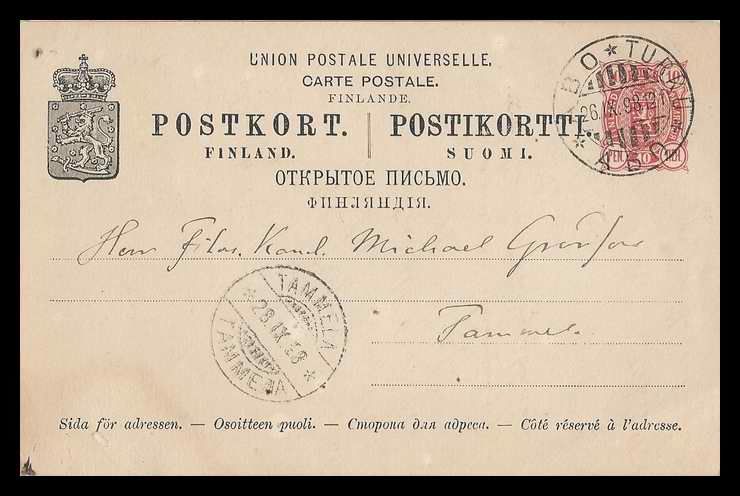 UNION POSTALE UNIVERSELLE.
CARTE POSTALE.
FINLANDE.
POSTKORT. POSTIKORTTI.
FINLAND. SUOMI.
ОТКРЫТОЕ ПИСЬМО.
ФИНЛЯНДІЯ.
ÅBO * TURKU * ÅBO
26.IX.98.
10
PEN
Herr Filos. Kand. Michael
TAMMELA
28 IX 98
TAMMELA
Tammela.
Sida för adressen. — Osoitteen puoli. — Сторона для адреса. — Côté réservé à l'adresse.